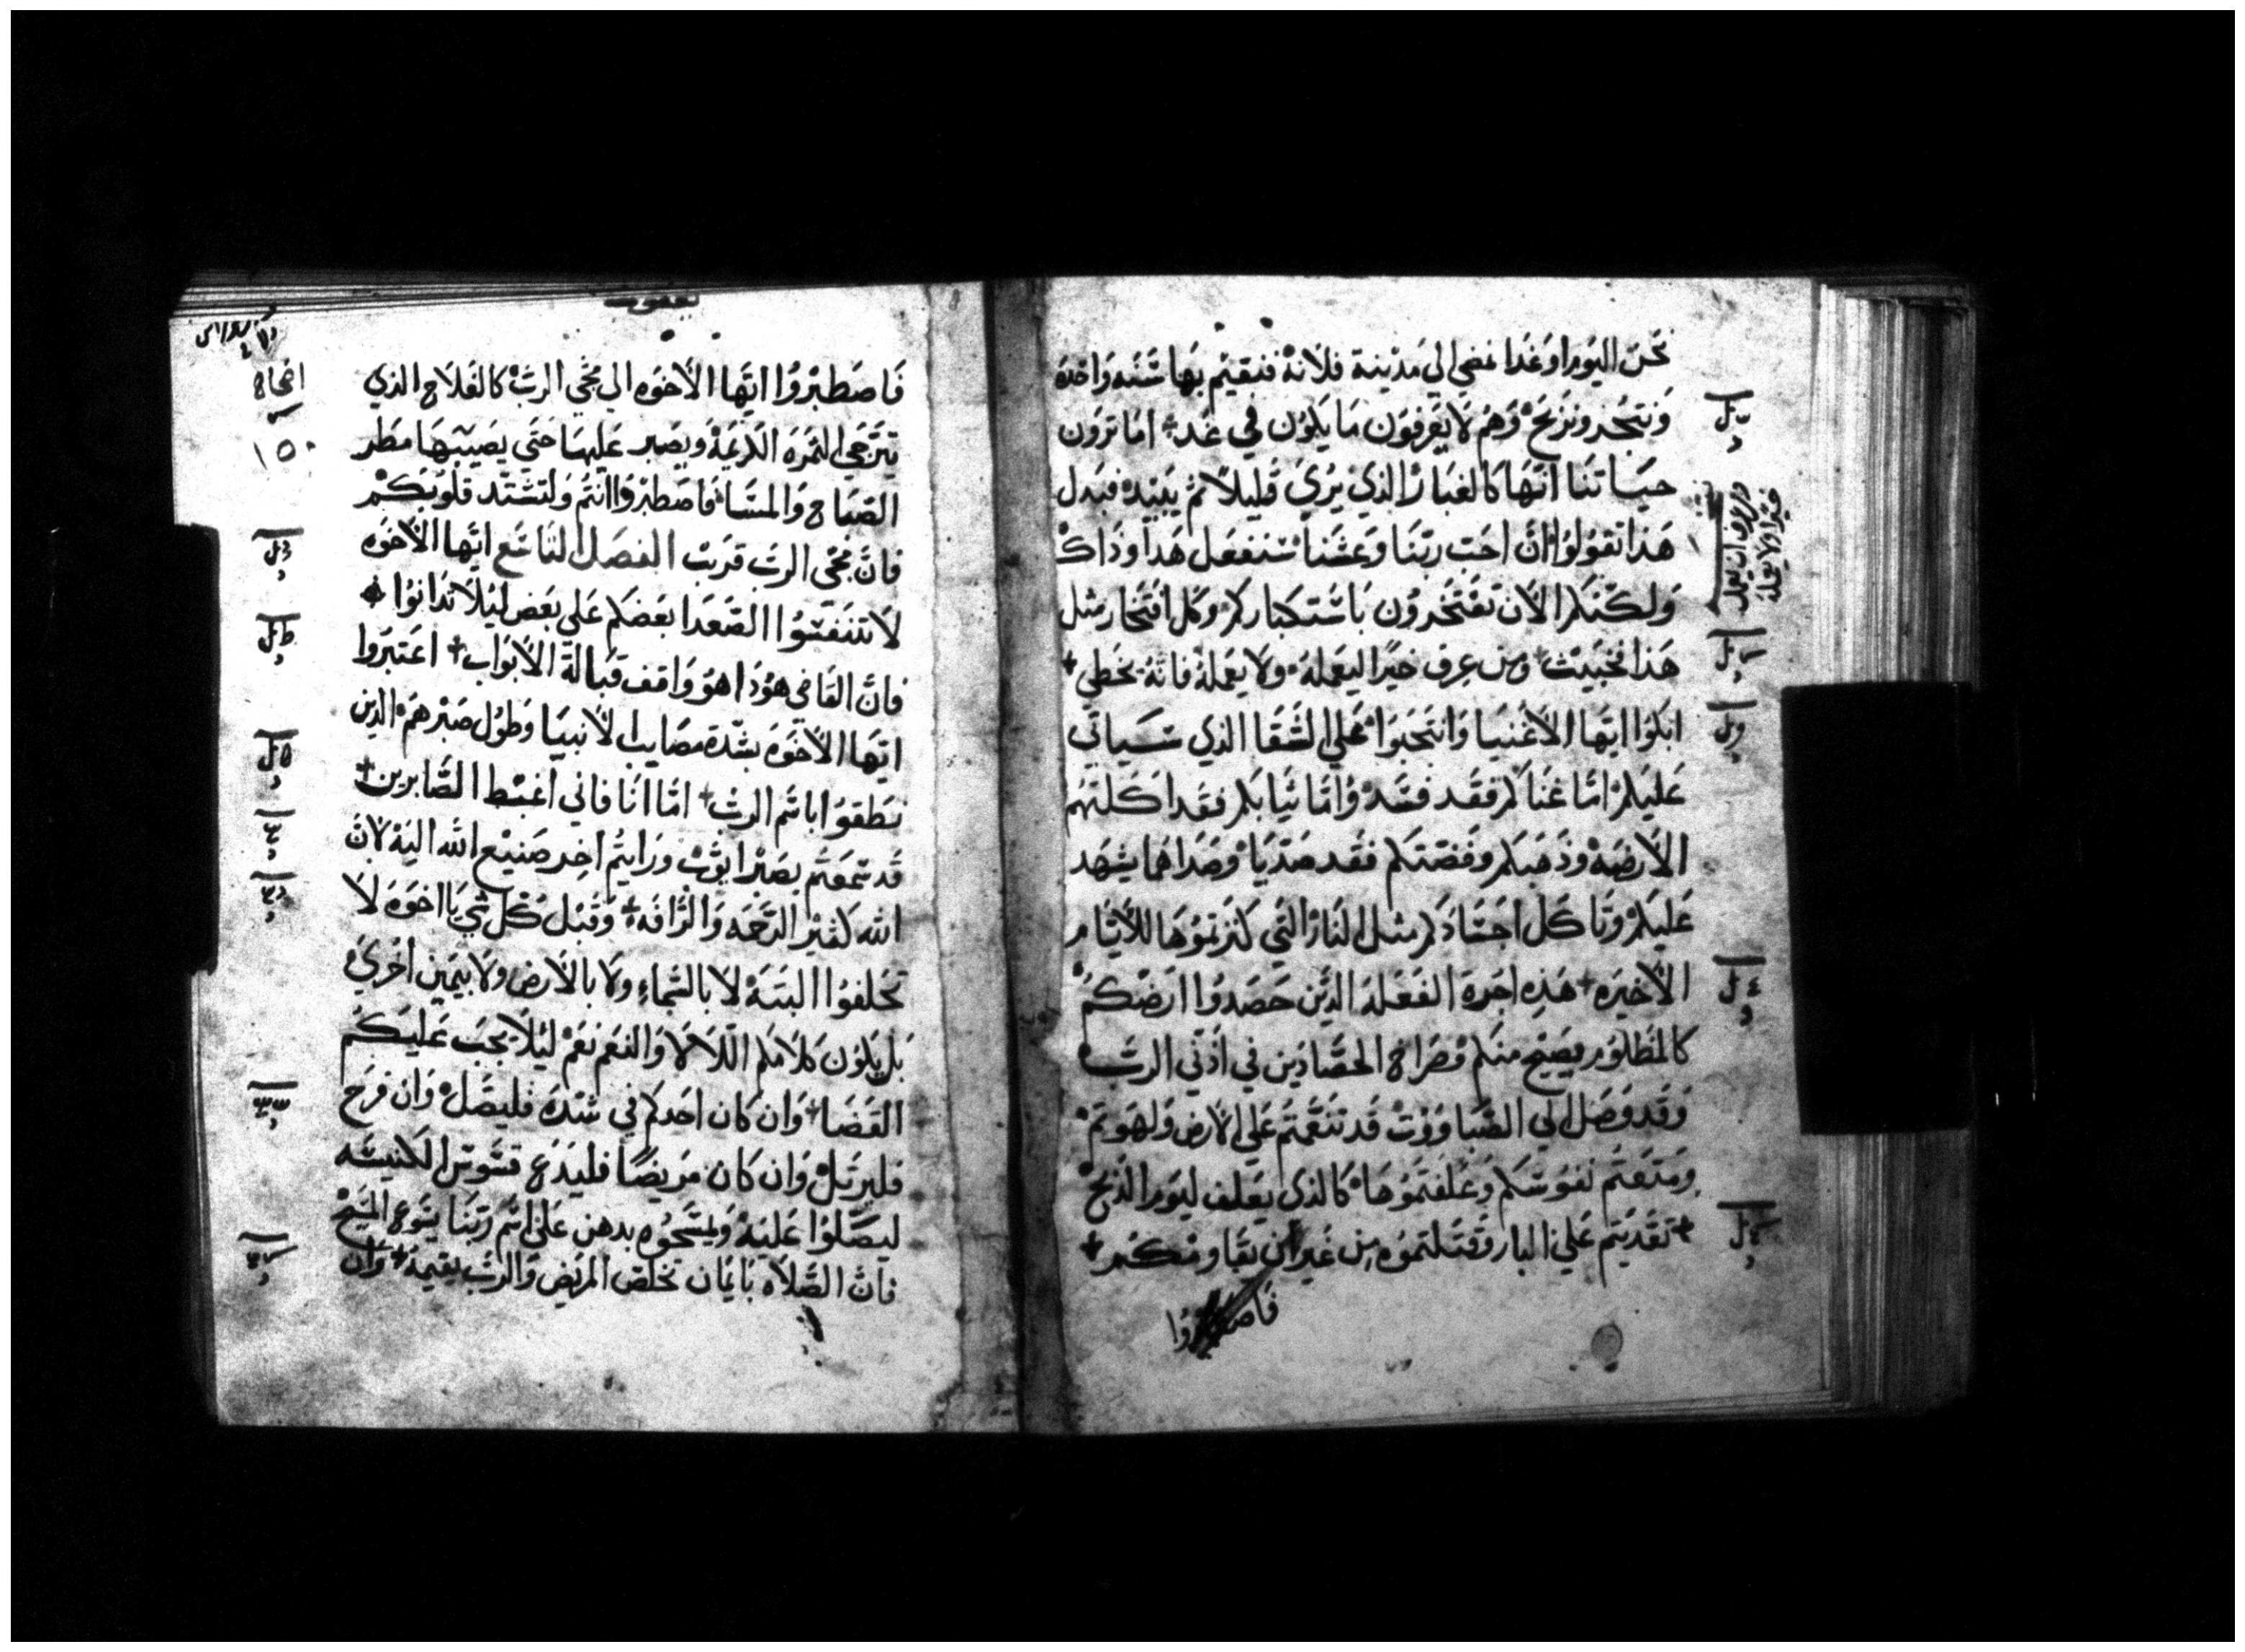 نحن اليوم او غدا نمضي الي مدينة فلانة فنقيم بها سنه واحده
ونتجر ونربح وهم لا يعرفون ما يكون في غد + اما ترون
حياتنا انها كالغبار الذي يري قليلا ثم يبيد فبدل
هذا تقولوا ان احب ربنا وعشنا سنفعل هذا وذاك
ولكنكم الان تفتخرون باستكباركم وكل افتخار مثل
هذا فخبيث + ومن عرف خيرا ليعمله ولا يعمله فانه يخطي +
ابكوا ايها الاغنيا وانتحبوا علي الشقا الذي سياتي
عليكم اما غناكم فقد فسد واما ثيابكم فقد اكلتهم
الارضه وذهبكم وفضتكم فقد صديا وصداهما يشهد
عليكم وتاكل اجسادكم مثل النار التي كنزتموها للايام
الاخيره + هذه اجرة الفعله الذين حصدوا ارضكم
كالمظلوم يصيح منكم وصراخ الحصادين في اذني الرب
وقد وصل الي الصباووت قد تنعمتم علي الارض ولهوتم
ومتعتم نفوسكم وعلفتموها كالذي يعلف ليوم الذبح
+ تعديتم علي البار وقتلتموه من غير ان يقاومكم +
يعقوب
اصحاح
١٥٠
فاصطبروا ايها الاخوه الي مجي الرب كالفلاح الذي
يترجي الثمره الكريمة ويصبر عليها حتي يصيبها مطر
الصباح والمسا فاصطبروا انتم ولتشتد قلوبكم
فان مجي الرب قريب الفصل التاسع ايها الاخوه
لا تتنفسوا الصعدا بعضكم علي بعض ليلا تدانوا
فان القاضي هوذا هو واقف قبالة الابواب + اعتبروا
ايها الاخوه بشدة مصايب الانبيا وطول صبرهم الذين
نطقوا باسم الرب + اما انا فاني اغبط الصابرين +
قد سمعتم بصبر ايوب ورايتم اخر صنيع الله اليه لان
الله كثير الرحمه والرافه + وقبل كل شي يا اخوه لا
تحلفوا البتة لا بالسماء ولا بالارض ولا بيمين اخري
بل يكون كلامكم اللا لا والنعم نعم ليلا يجب عليكم
القضا + وان كان احدكم في شده فليصل وان فرح
فليرتل وان كان مريضا فليدع قسوس الكنيسه
ليصلوا عليه ويمسحوه بدهن علي اسم ربنا يسوع المسيح
فان الصلاه بايمان تخلص المريض والرب يقيمه + وان